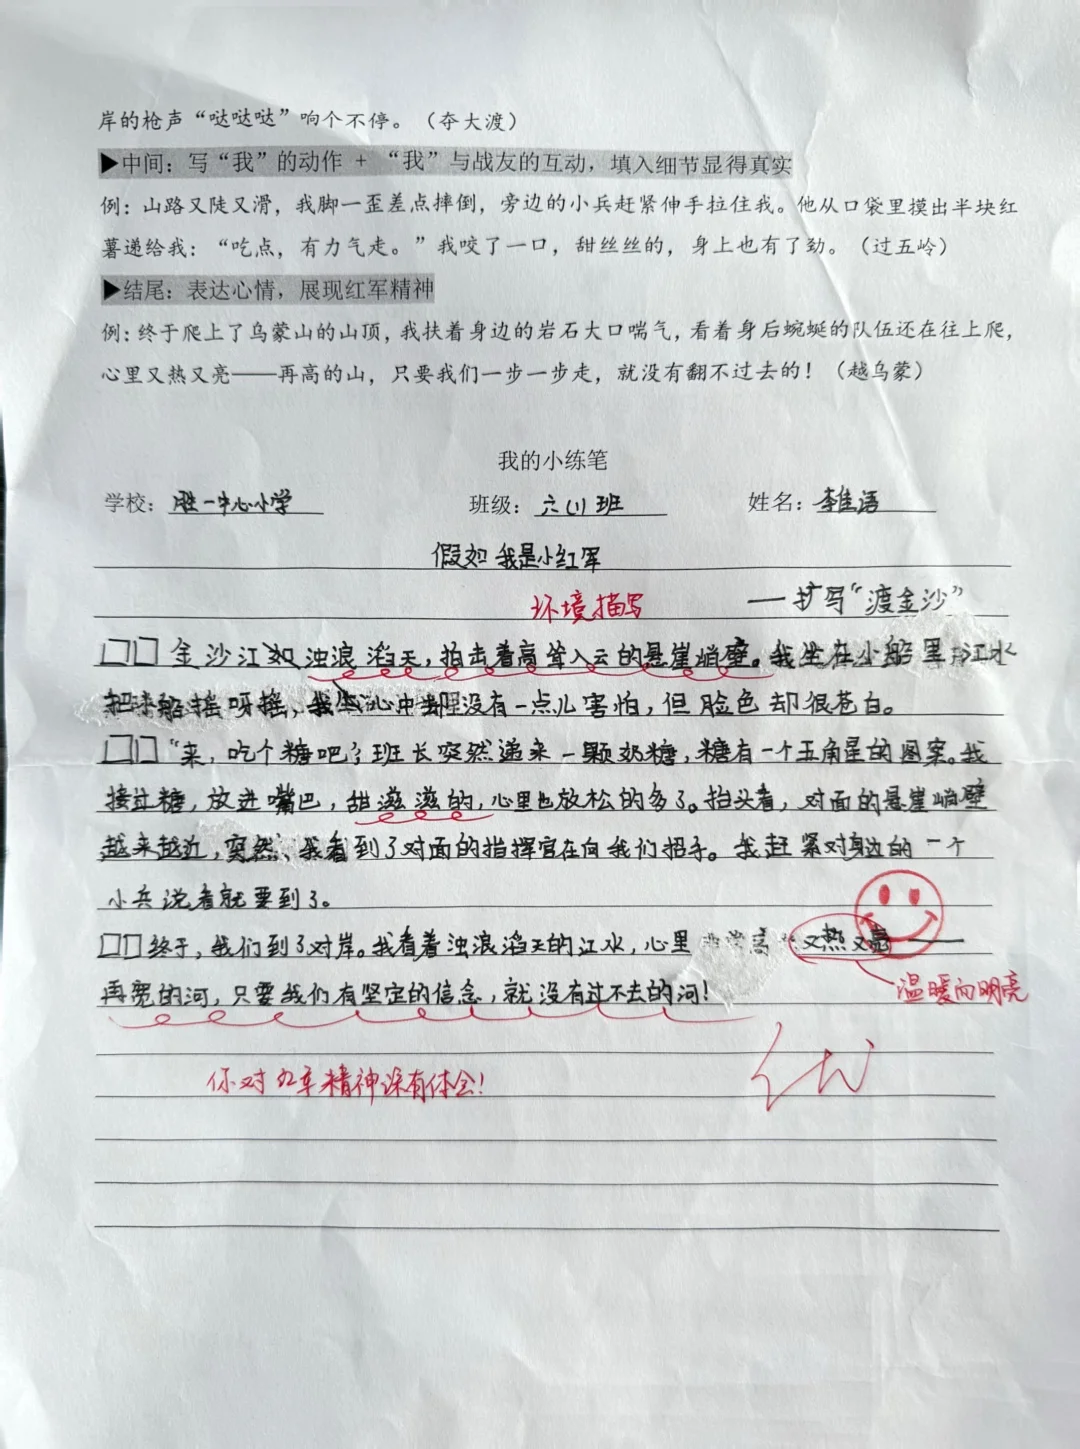 岸的枪声“哒哒哒”响个不停。（夺大渡）
▶中间：写“我”的动作 + “我”与战友的互动，填入细节显得真实
例：山路又陡又滑，我脚一歪差点摔倒，旁边的小兵赶紧伸手拉住我。他从口袋里摸出半块红
薯递给我：“吃点，有力气走。”我咬了一口，甜丝丝的，身上也有了劲。（过五岭）
▶结尾：表达心情，展现红军精神
例：终于爬上了乌蒙山的山顶，我扶着身边的岩石大口喘气，看着身后蜿蜒的队伍还在往上爬，
心里又热又亮——再高的山，只要我们一步一步走，就没有翻不过去的！（越乌蒙）
我的小练笔
学校：胜一中心小学 班级：六(1)班 姓名：李佳语
假如我是小红军
环境描写 —扩写“渡金沙”
□□金沙江如浊浪滔天，拍击着高耸入云的悬崖峭壁。我坐在小船里，江水
把船摇呀摇，我 心中却没有一点儿害怕，但脸色却很苍白。
□□“来，吃个糖吧”班长突然递来一颗奶糖，糖有一个五角星的图案。我
接过糖，放进嘴巴，甜滋滋的，心里也放松的多了。抬头看，对面的悬崖峭壁
越来越近，突然、我看到了对面的指挥官在向我们招手。我赶紧对身边的一个
小兵说着就要到了。
□□终于，我们到了对岸。我看着浊浪滔天的江水，心里 又热又亮——
再宽的河，只要我们有坚定的信念，就没有过不去的河！
温暖向明亮
你对红军精神深有体会！
优